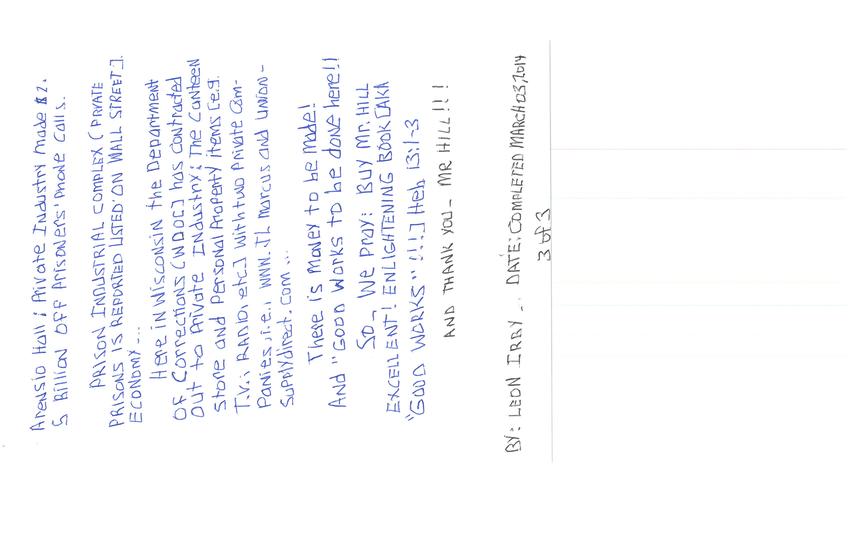 Arensio Hall; Private Industry made $2.
5 Billion OFF Prisoners' Phone Calls.
PRISON INDUSTRIAL COMPLEX (PRIVATE
PRISONS IS REPORTED LISTED ON WALL STREET].
ECONOMY...
Here in Wisconsin the Department
OF Corrections [WDOC] has contracted
Out to Private Industry; The Canteen
Store and Personal Property items [e.g.
T.V.; RADIO; etc.] with two Private Com-
Panies, i.e., WWW. JL marcus and Union-
Supplydirect.com...
There is money to be made!
And "GOOD Works to be done here!!
So, We Pray: BUY Mr. HILL
EXCELLENT! ENLIGHTENING BOOK [AKA
"GOOD WORKS" !!!] Heb 13:1-3
AND THANK YOU - MR HILL!!!
BY: LEON IRBY... DATE: COMPLETED MARCH 03, 2014
3 of 3